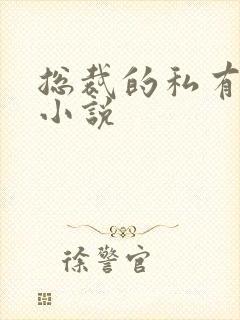 总裁的私有
小说
徐警官